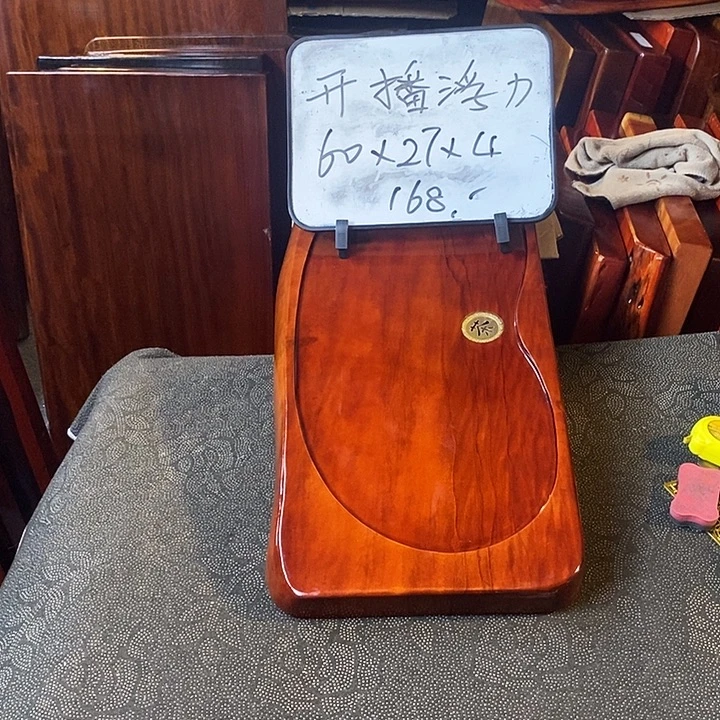 开播浮力
60×27×4
168.-